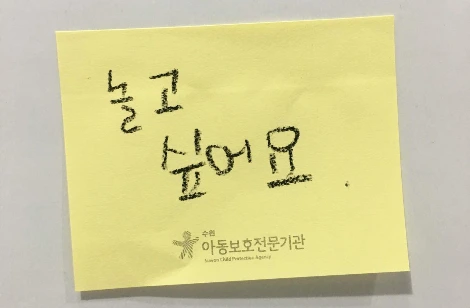 놀고
싶어요.
수원
아동보호전문기관
Suwon Child Protection Agency